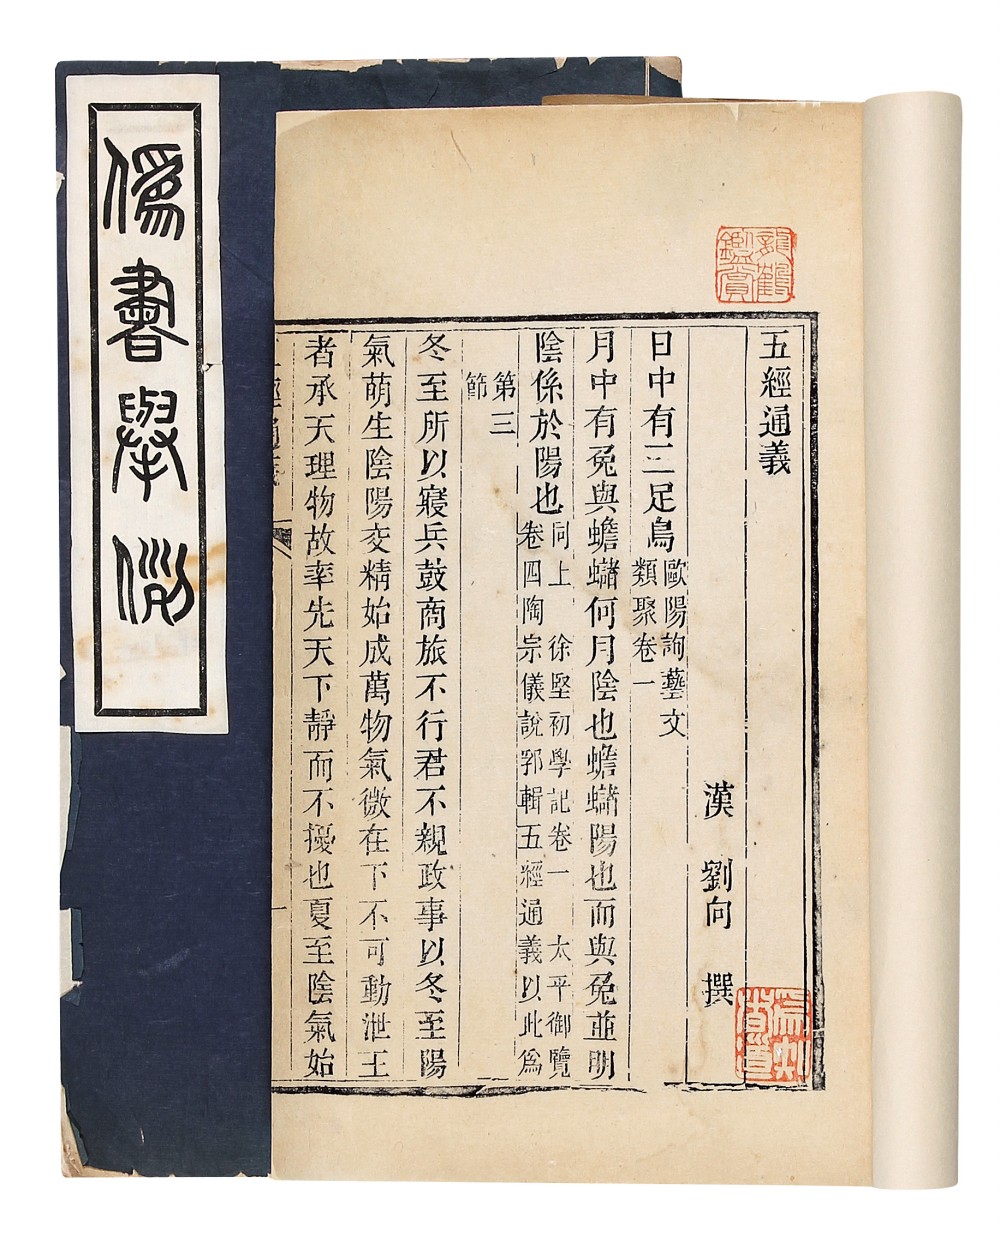 僞書舉例
五經通義
漢 劉向 撰
日中有三足烏歐陽詢藝文類聚卷一
月中有兔與蟾蠩何月陰也蟾蠩陽也而與兔並明
陰係於陽也同上 徐堅初學記卷一 太平御覽卷四陶宗儀說郛輯五經通義以此爲
第三節
冬至所以寢兵鼓商旅不行君不親政事以冬至陽
氣萌生陰陽交精始成萬物氣微在下不可動泄王
者承天理物故率先天下靜而不擾也夏至陰氣始
經通義 一